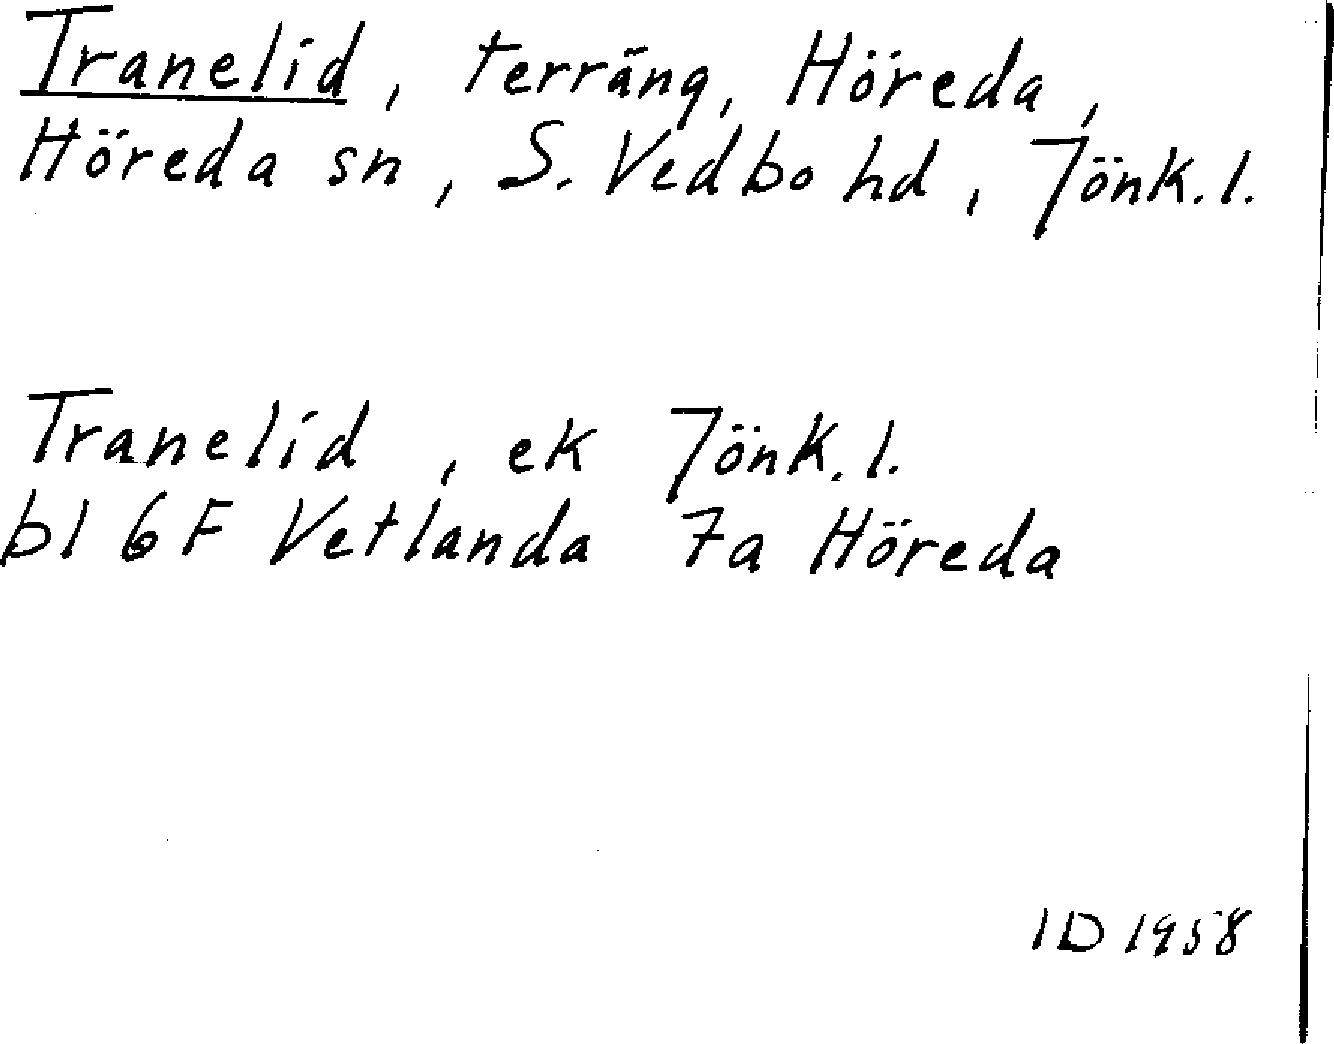 Tranelid, terräng, Höreda,
Höreda sn, S. Vedbo hd, Jönk. l.
Tranelid, ek Jönk. l.
bl 6F Vetlanda 7a Höreda
ID 1958